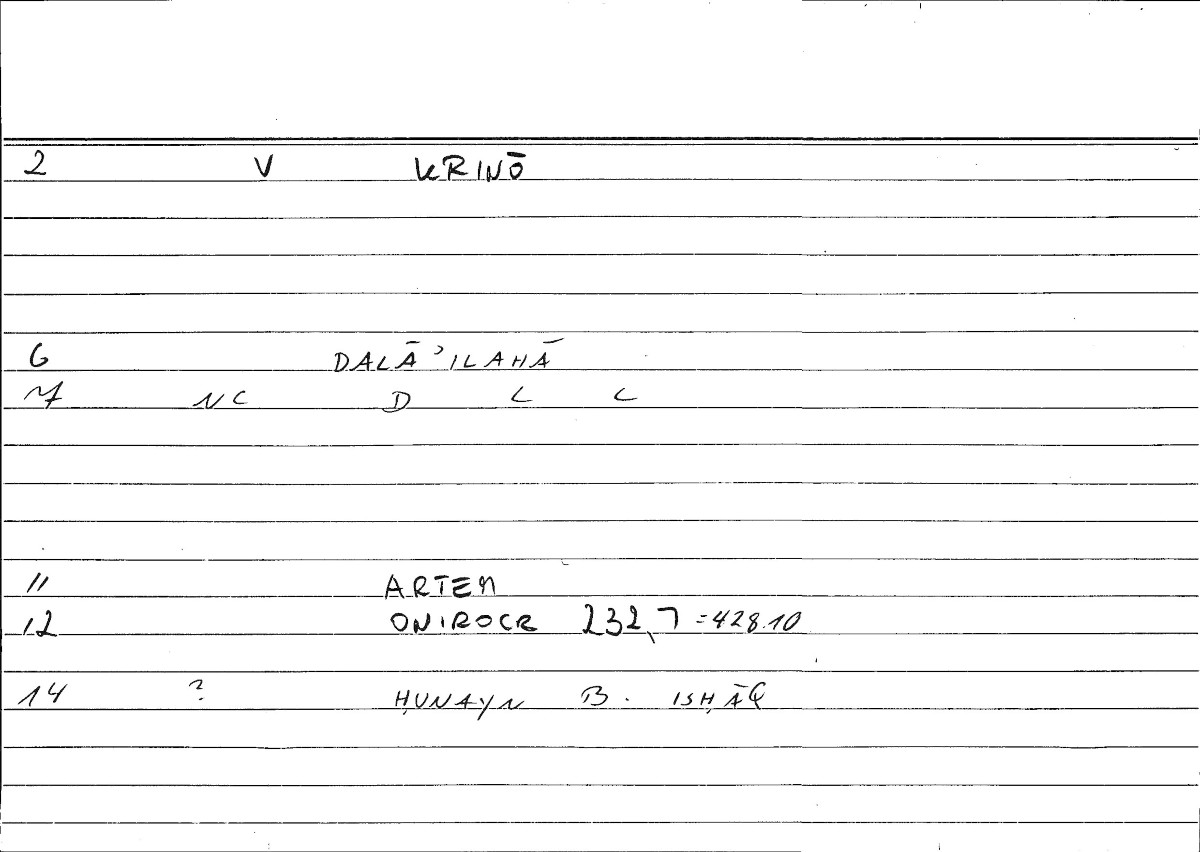 2 V KRINŌ
6 DALĀʾILAHĀ
7 NC D L L
11 ARTEM
12 ONIROCR 232,7 =428.10
14 ? ḤUNAYN B. ISḤĀQ